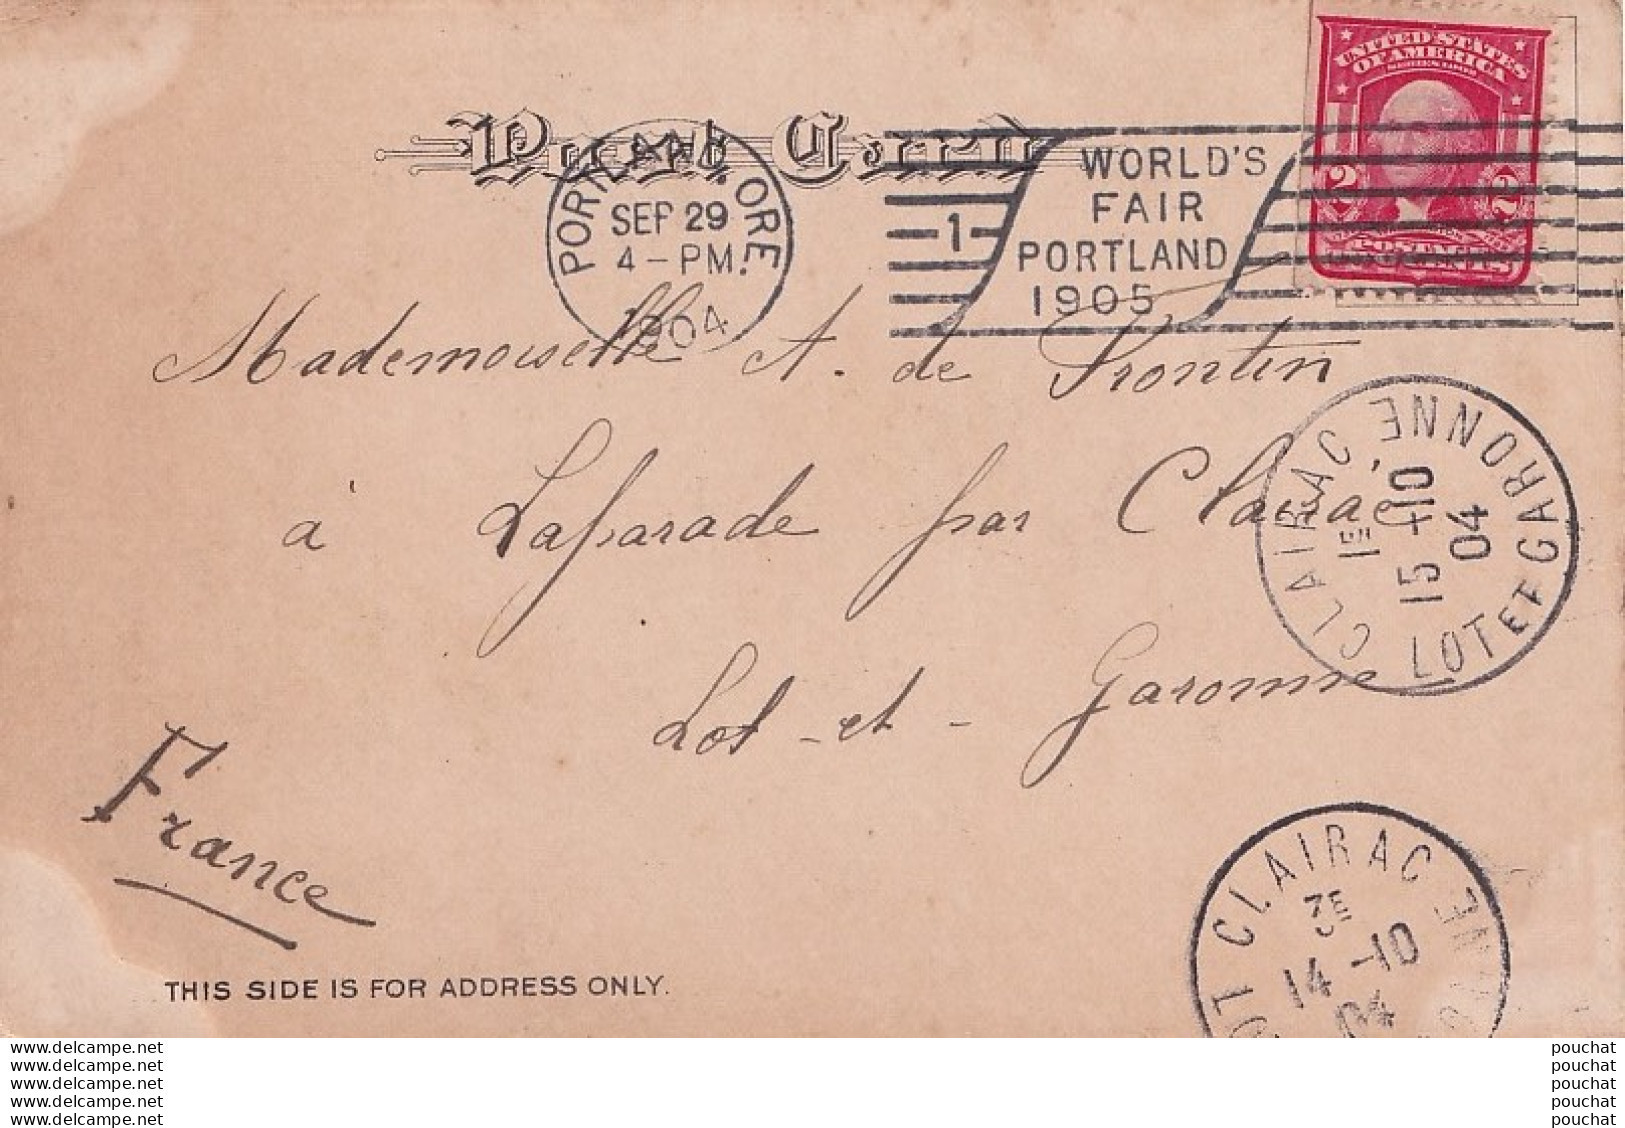 Post Card
PORTLAND, ORE.
SEP 29
4 - PM.
1904
1
WORLD'S
FAIR
PORTLAND
1905
UNITED STATES
OF AMERICA
SERIES 1902
2 2
POSTAGE
TWO CENTS
Mademoiselle A. de Frontin
à Laparade par Clairac
Lot-et-Garonne
France
CLAIRAC
1E
15 -10
04
LOT ET GARONNE
CLAIRAC
3E
14 -10
04
THIS SIDE IS FOR ADDRESS ONLY.
www.delcampe.net pouchat
www.delcampe.net pouchat
www.delcampe.net pouchat
www.delcampe.net pouchat
www.delcampe.net pouchat